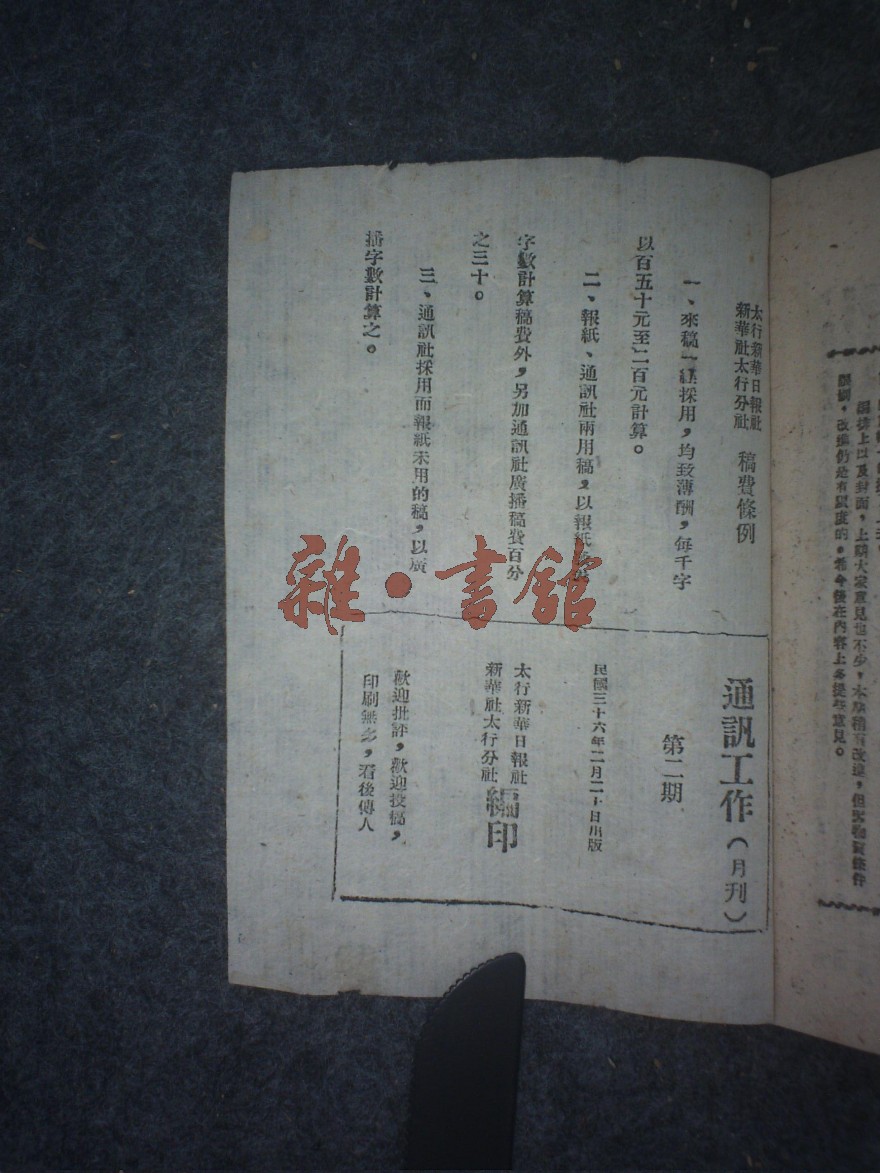 太行新華日報社
新華社太行分社
稿費條例
一、來稿一經採用，均致薄酬，每千字
以百五十元至二百元計算。
二、報紙、通訊社兩用稿，以報紙
字數計算稿費外，另加通訊社廣播稿費百分
之三十。
三、通訊社採用而報紙未用的稿，以廣
播字數計算之。
通訊工作（月刊）
第二期
民國三十六年二月二十日出版
太行新華日報社
新華社太行分社
編印
歡迎批評，歡迎投稿，
印刷無多，看後傳人
雜·書館
上以及封面，上購大家意見也不少，本期稍有改進，但
改進仍是有限度的。希今後在內容上多提些意見。